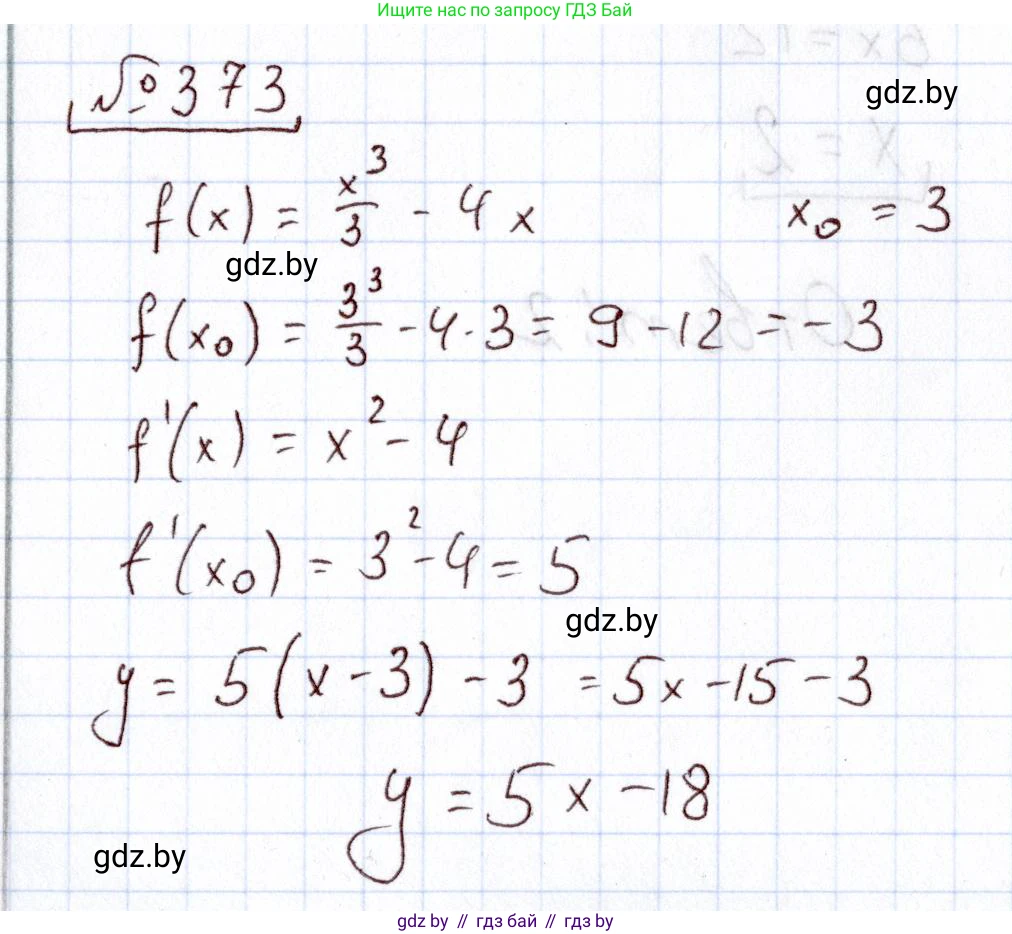 Ищите нас по запросу ГДЗ Бай
№ 373
gdz.by
f(x) = x³/3 - 4x x₀ = 3
gdz.by
f(x₀) = 3³/3 - 4·3 = 9 - 12 = -3
f'(x) = x² - 4
f'(x₀) = 3² - 4 = 5
gdz.by
y = 5(x - 3) - 3 = 5x - 15 - 3
y = 5x - 18
gdz.by
gdz.by // гдз бай // гдз by